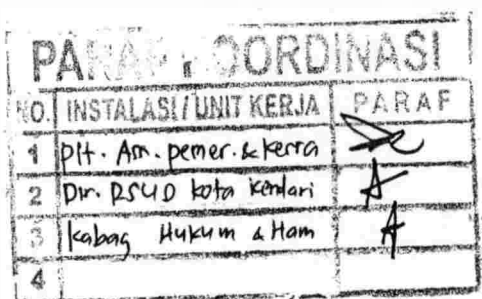 PARAF KOORDINASI
NO. INSTALASI/UNIT KERJA PARAF
1 Plt. Ass. pemer. & kerra
2 Dir. RSUD kota kendari
3 kabag Hukum & Ham
4